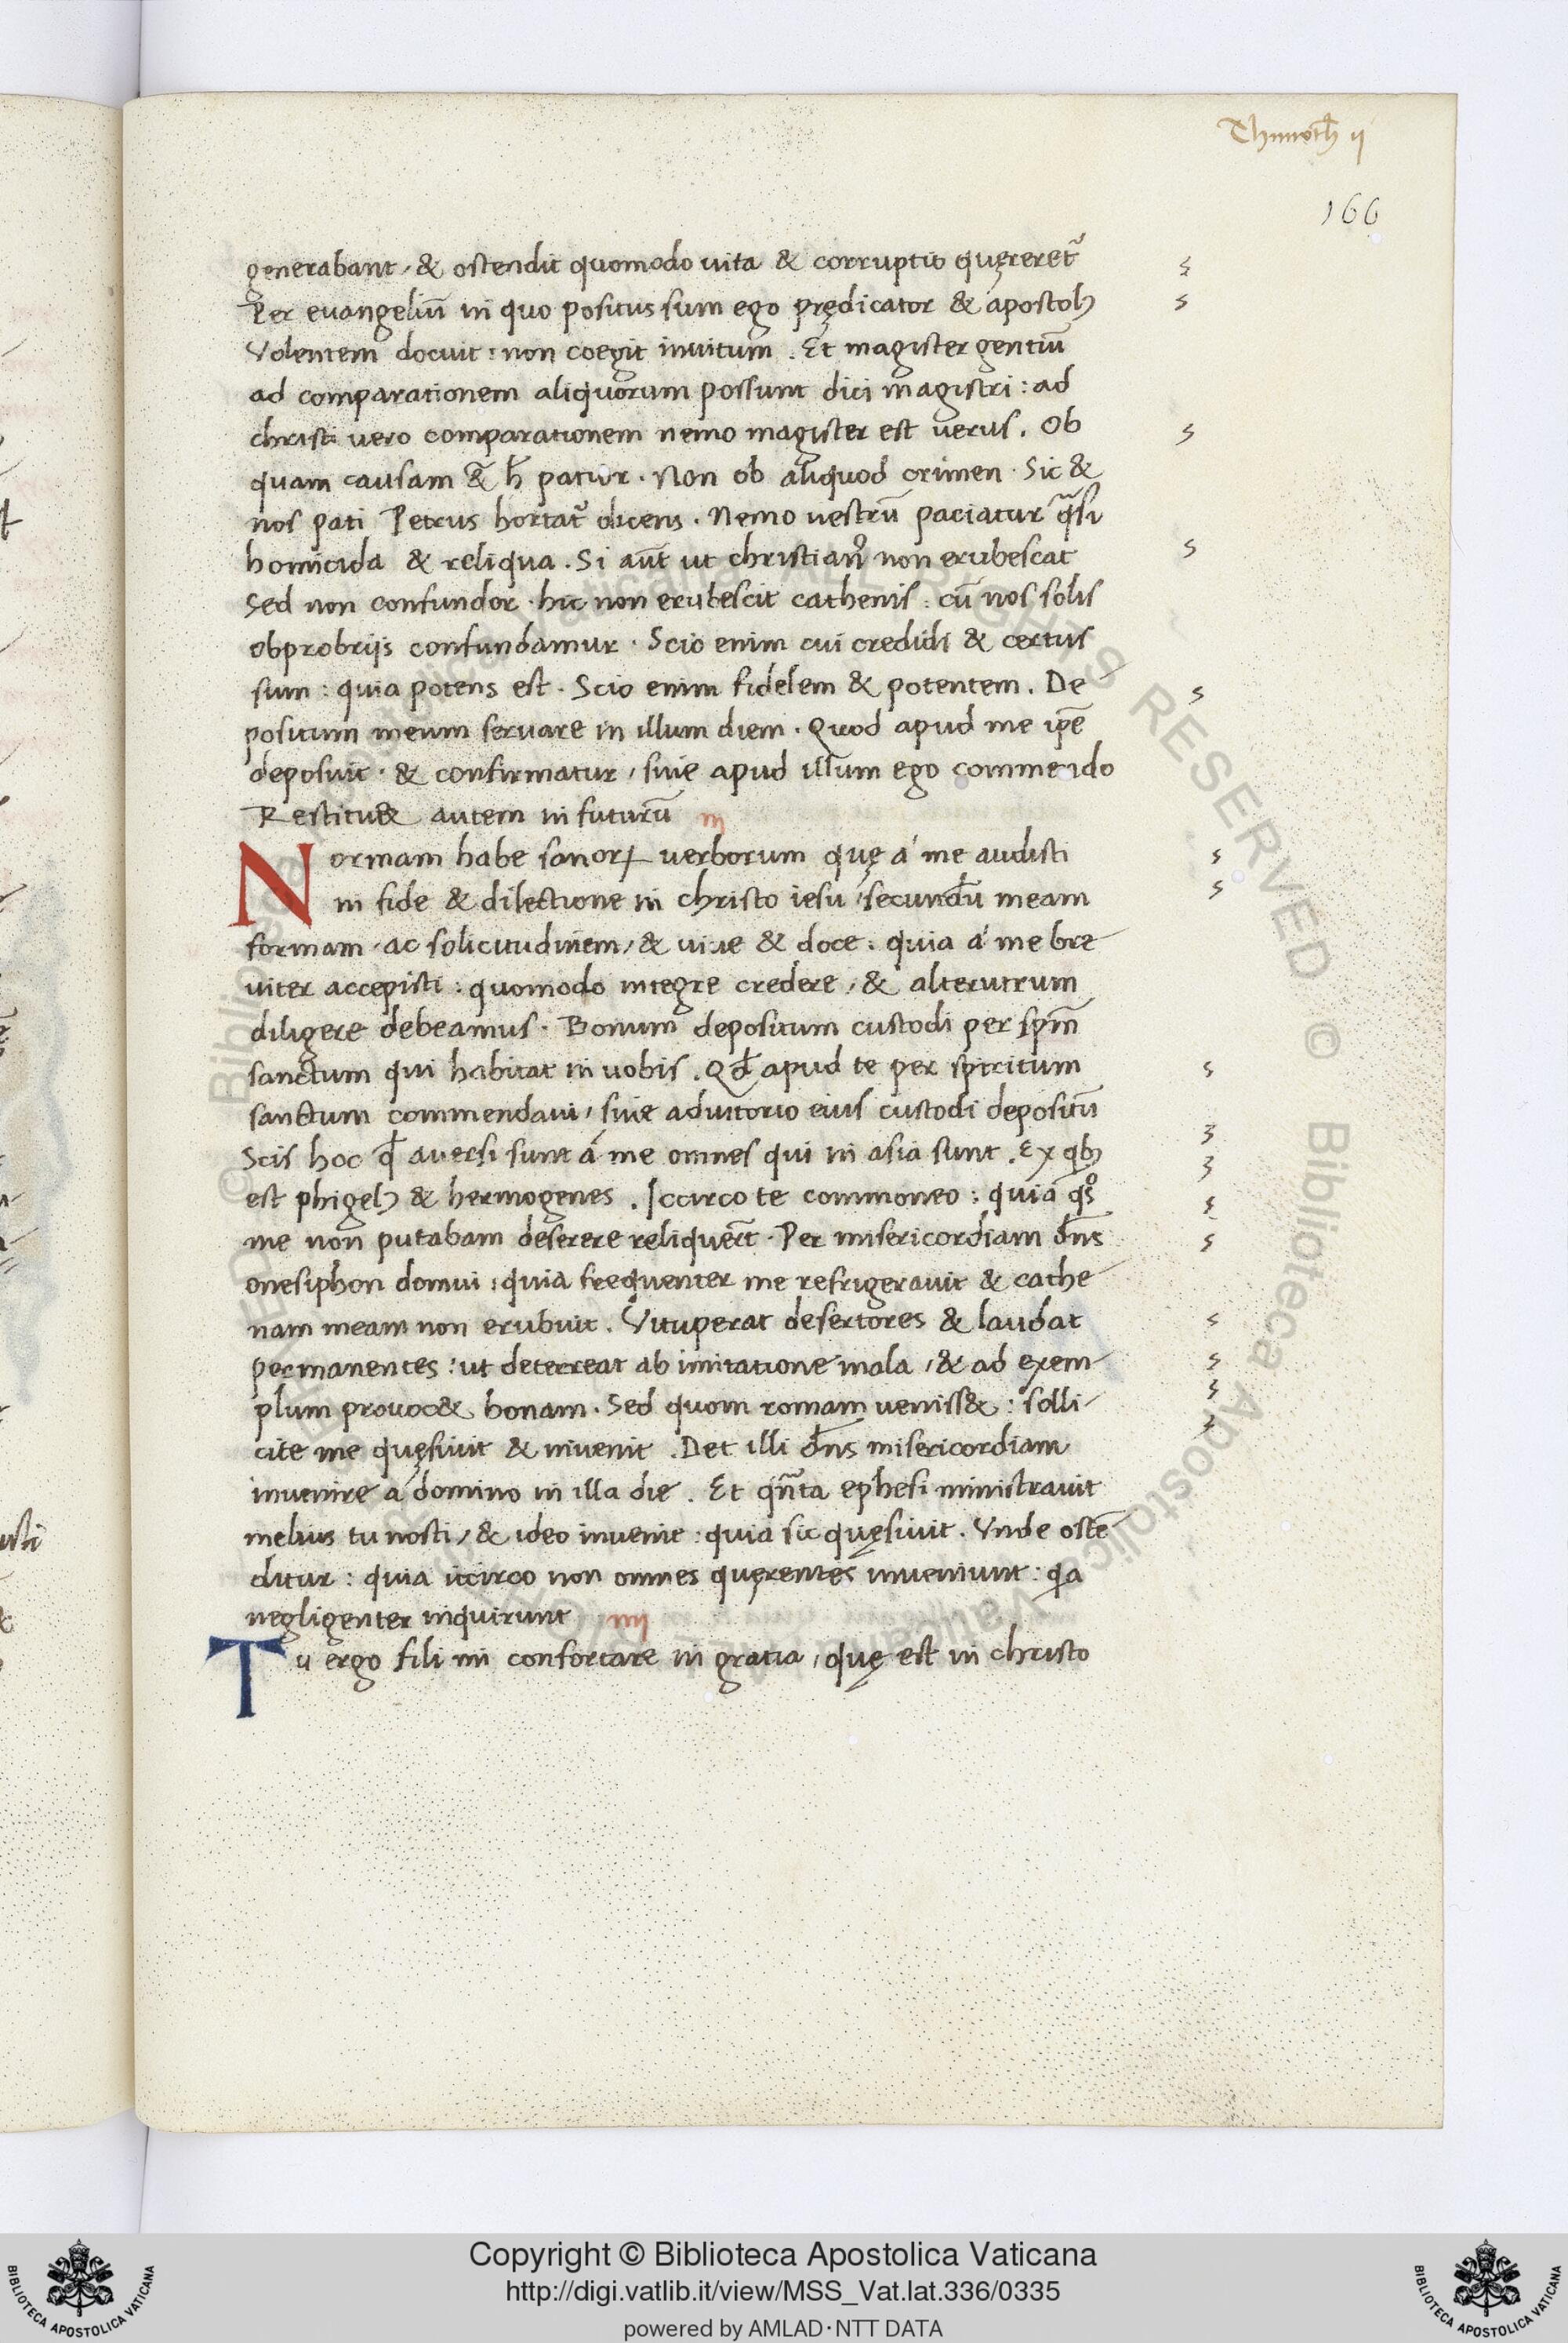 Thimoth̄ ij
166
generabant, & ostendit quomodo uita & corruptio quęreret᷑
Per euangeliū in quo positus sum ego prędicator & apostolꝰ
Volentem docuit: non coegit inuitum. Et magister gentiū
ad comparationem aliquorum possunt dici magistri: ad
christi uero comparationem nemo magister est uerus. Ob
quam causam &̄ h̄ patior. Non ob aliquod crimen. Sic &
nos pati Petrus hortat᷑ dicens. Nemo uestrū paciatur q̄si
homicida & reliqua. Si aūt ut christianꝰ non erubescat
Sed non confundor. hic non erubescit cathenis: cū nos solis
obprobrijs confundamur. Scio enim cui credidi & certus
sum: quia potens est. Scio enim fidelem & potentem. De
positum meum seruare in illum diem. Quod apud me ip̄e
deposuit. & confirmatur, siue apud illum ego commendo
Restitu& autem in futurū iij
Normam habe sanoꝝ uerborum quę á me audisti
in fide & dilectione in christo iesu, secundū meam
formam, ac solicitudinem, & uiue & doce: quia á me bre
uiter accepisti: quomodo integre credere, & alterutrum
diligere debeamus. Bonum depositum custodi per spm̄
sanctum qui habitat in uobis. Qđ apud te per spiritum
sanctum commendaui, siue adiutorio eius custodi depositū
Scis hoc qđ auersi sunt á me omnes qui in asia sunt. Ex qbꝰ
est phigelꝰ & hermogenes. Iccirco te commoneo: quia qͦs
me non putabam deserere reliquer̄t. Per misericordiam dn̄s
onesiphon domui: quia frequenter me refrigerauit & cathe
nam meam non erubuit. Vituperat desertores & laudat
permanentes: ut deterreat ab imitatione mala, & ad exem
plum prouoc& bonam. Sed quom romam ueniss&: solli
cite me quęsiuit & inuenit. Det illi dn̄s misericordiam
inuenire á domino in illa die. Et qn̄ta ephesi ministrauit
melius tu nosti, & ideo inuenit: quia sic quęsiuit. Vnde ostē
ditur: quia iccirco non omnes quęrentes inueniunt: qa
negligenter inquirunt iiij
Tu ergo fili mi confortare in gratia, quę est in christo
Copyright © Biblioteca Apostolica Vaticana
http://digi.vatlib.it/view/MSS_Vat.lat.336/0335
powered by AMLAD·NTT DATA
BIBLIOTECA APOSTOLICA VATICANA
BIBLIOTECA APOSTOLICA VATICANA